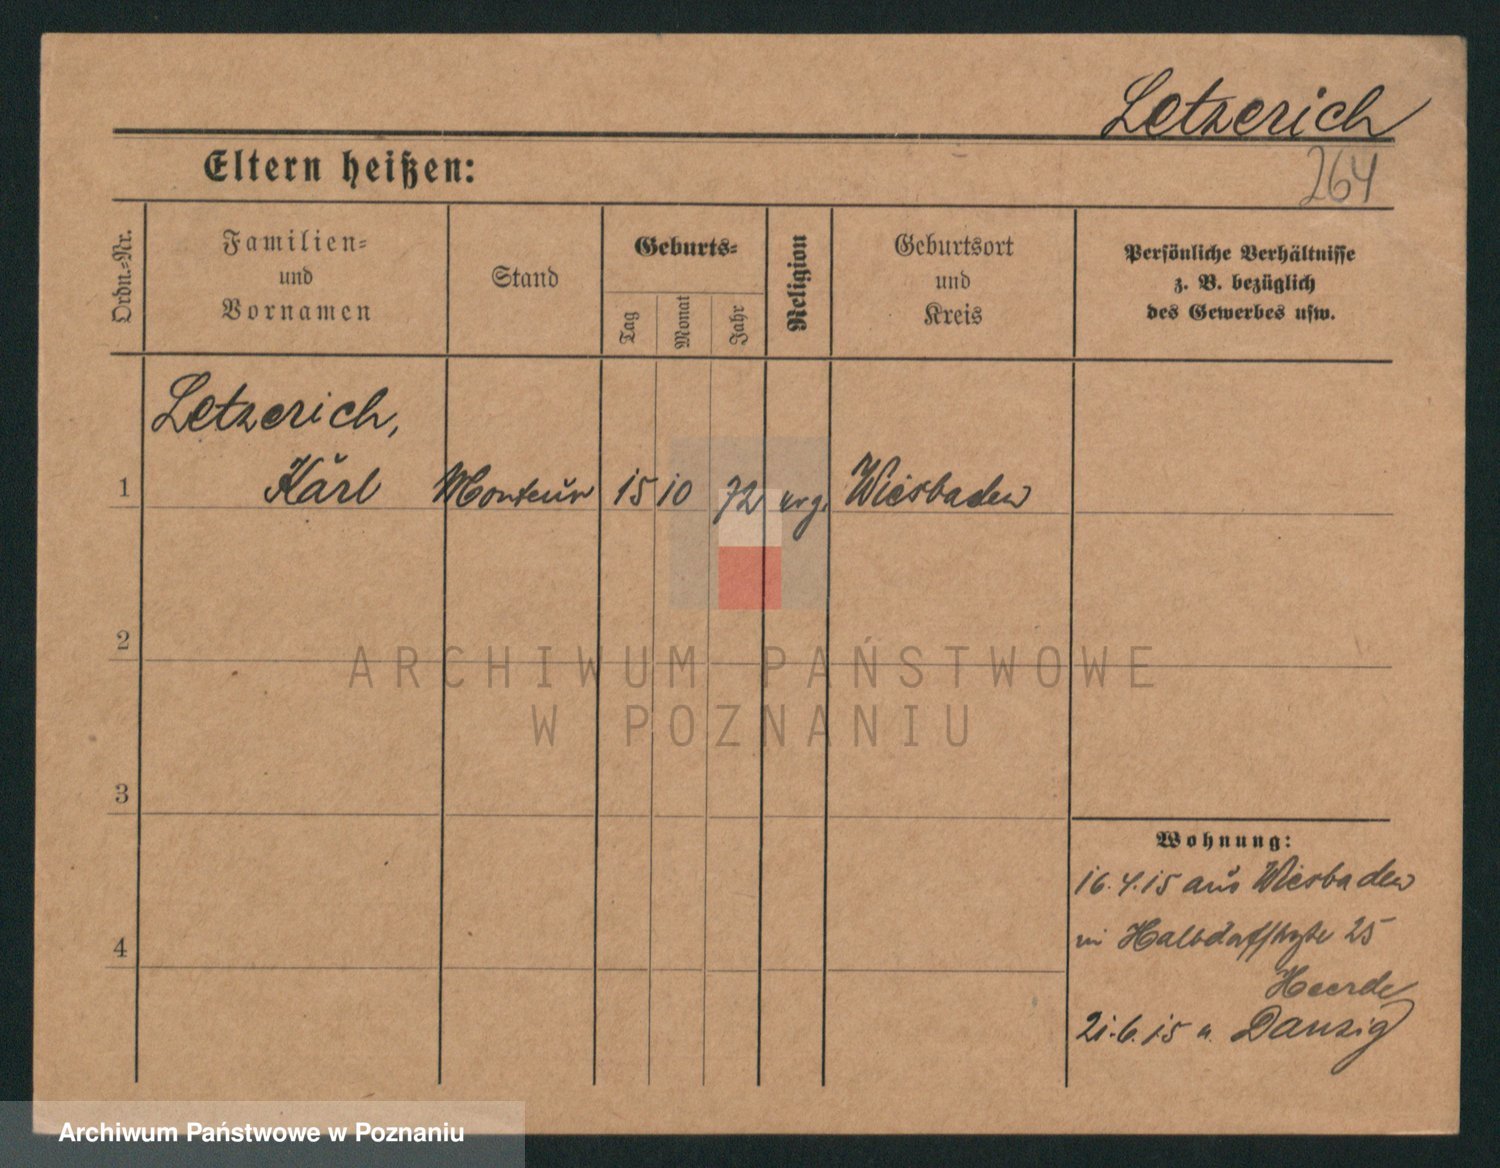 Letzerich
264
Eltern heißen:
Ordn.-Nr.
Familien-
und
Vornamen
Stand
Geburts-
Tag
Monat
Jahr
Religion
Geburtsort
und
Kreis
Persönliche Verhältnisse
z. B. bezüglich
des Gewerbes usw.
Letzerich,
1 Karl Monteur 15 10 72 evg. Wiesbaden
2
3
4
ARCHIWUM PAŃSTWOWE
W POZNANIU
Wohnung:
16.4.15 aus Wiesbaden
in 25
Heerde
21.6.15 n. Danzig
Archiwum Państwowe w Poznaniu